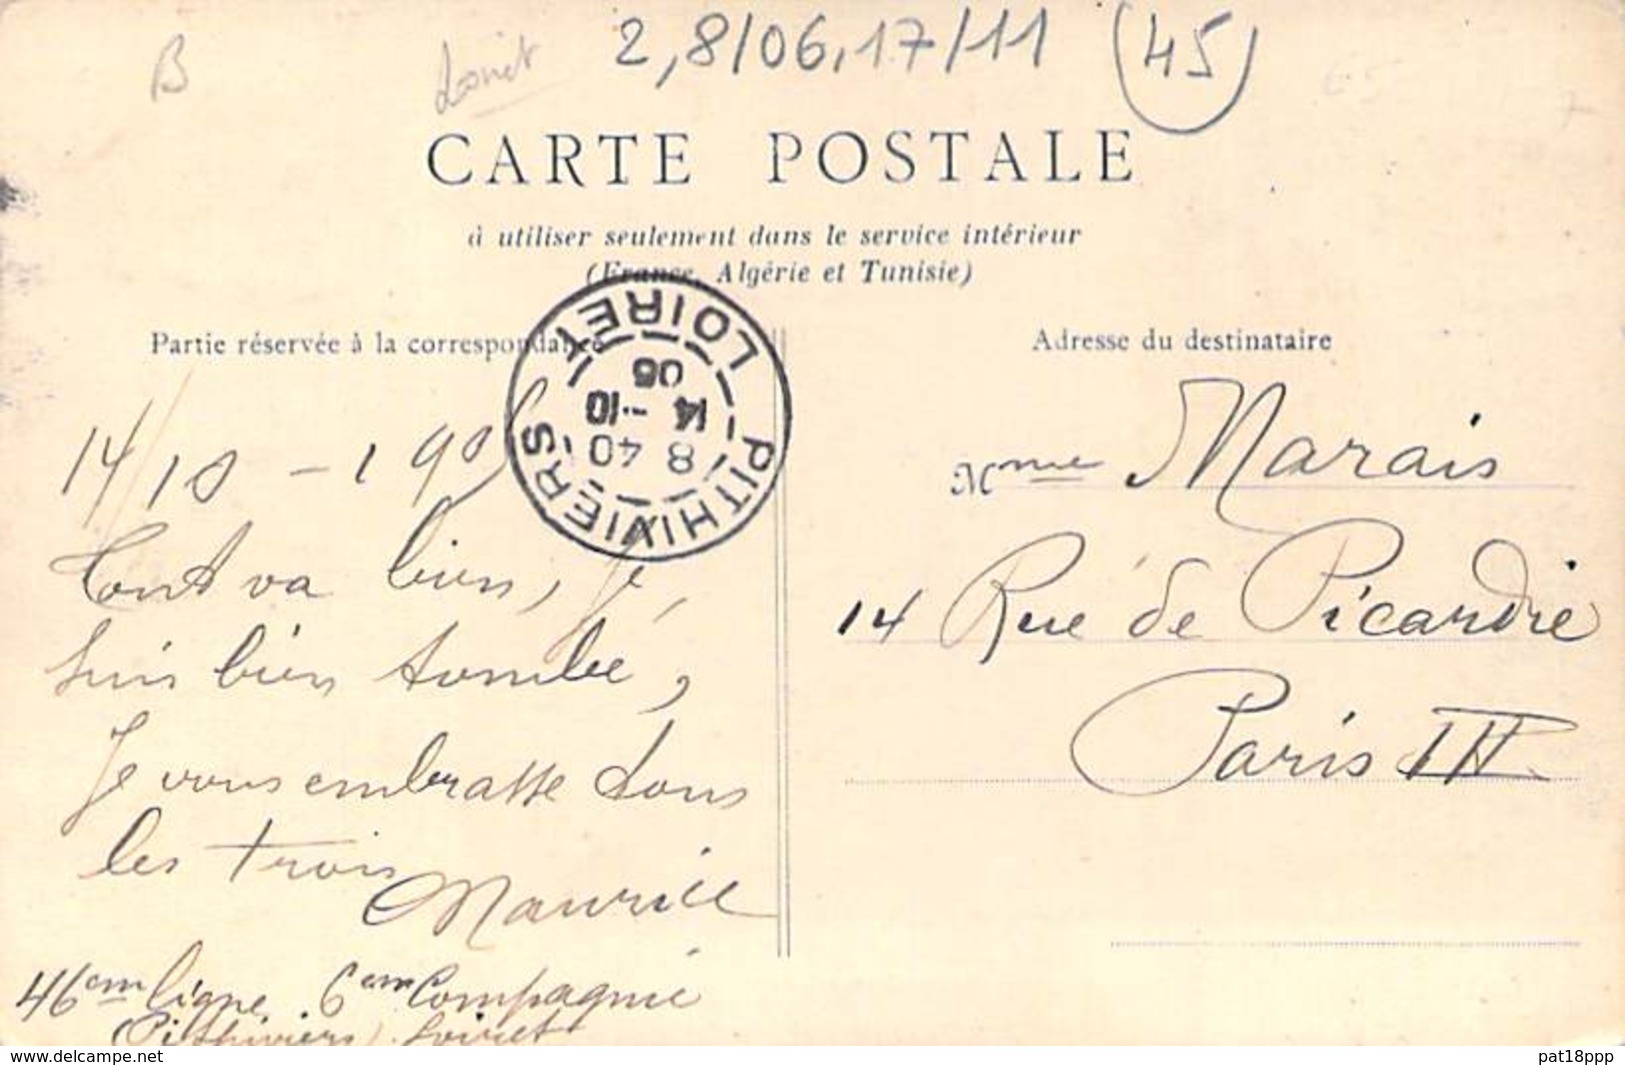 B Loiret 2,8/06,17/11 (45)
CARTE POSTALE
à utiliser seulement dans le service intérieur
(France, Algérie et Tunisie)
Partie réservée à la correspondance
Adresse du destinataire
PITHIVIERS LOIRET
8 40
14 -10
06
14/10 - 190
Tout va bien, je
suis bien tombé,
Je vous embrasse tous
les trois
Maurice
46em ligne, 6em Compagnie
(Pithiviers) Loiret
Mme Marais
14 Rue de Picardie
Paris III
delcampe.net
pat18ppp